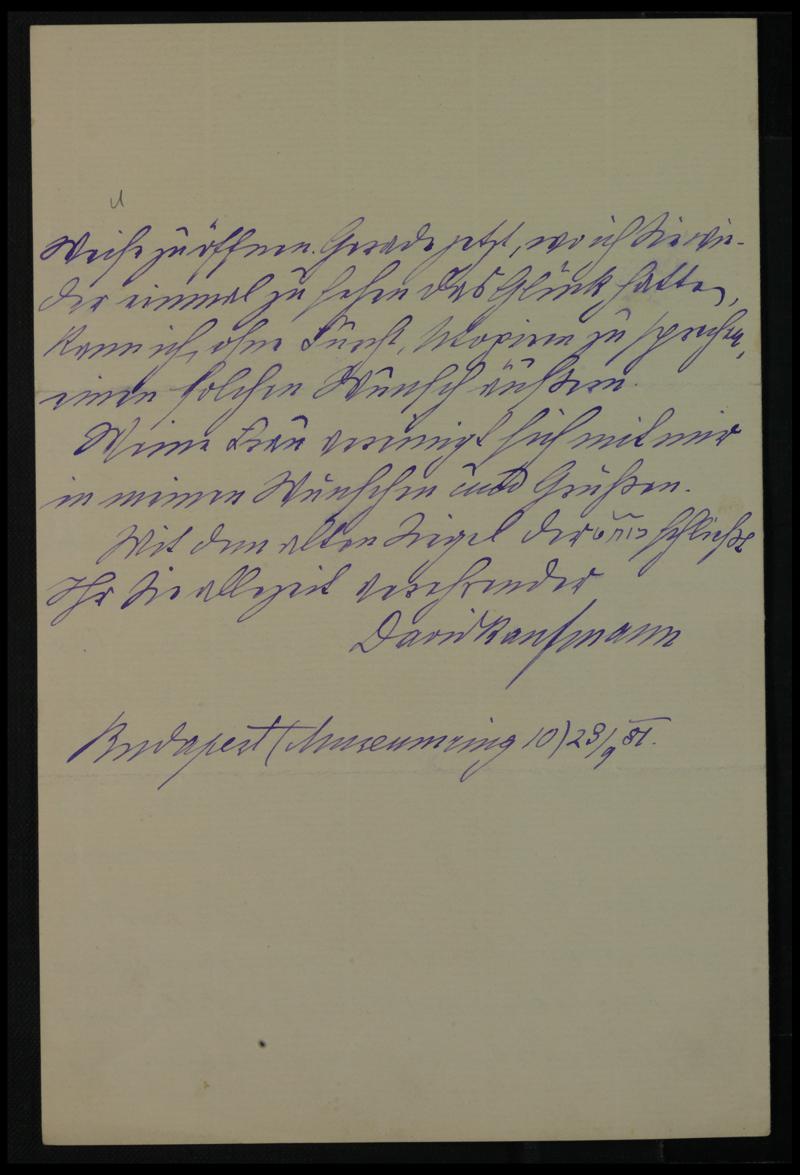 Weise zu öffnen. Gerade jetzt, wo ich Sie wie-
der einmal zu sehen das Glück hatte,
kann ich, ohne Furcht, zu sprechen,
einen solchen Wunsch äußern.
Meine Frau vereinigt sich mit mir
in meinen Wünschen und Grüßen.
Mit dem alten Siegel der schließt
Ihr Sie allezeit verehrender
David Kaufmann
Budapest (Museumring 10) 23/9 81.